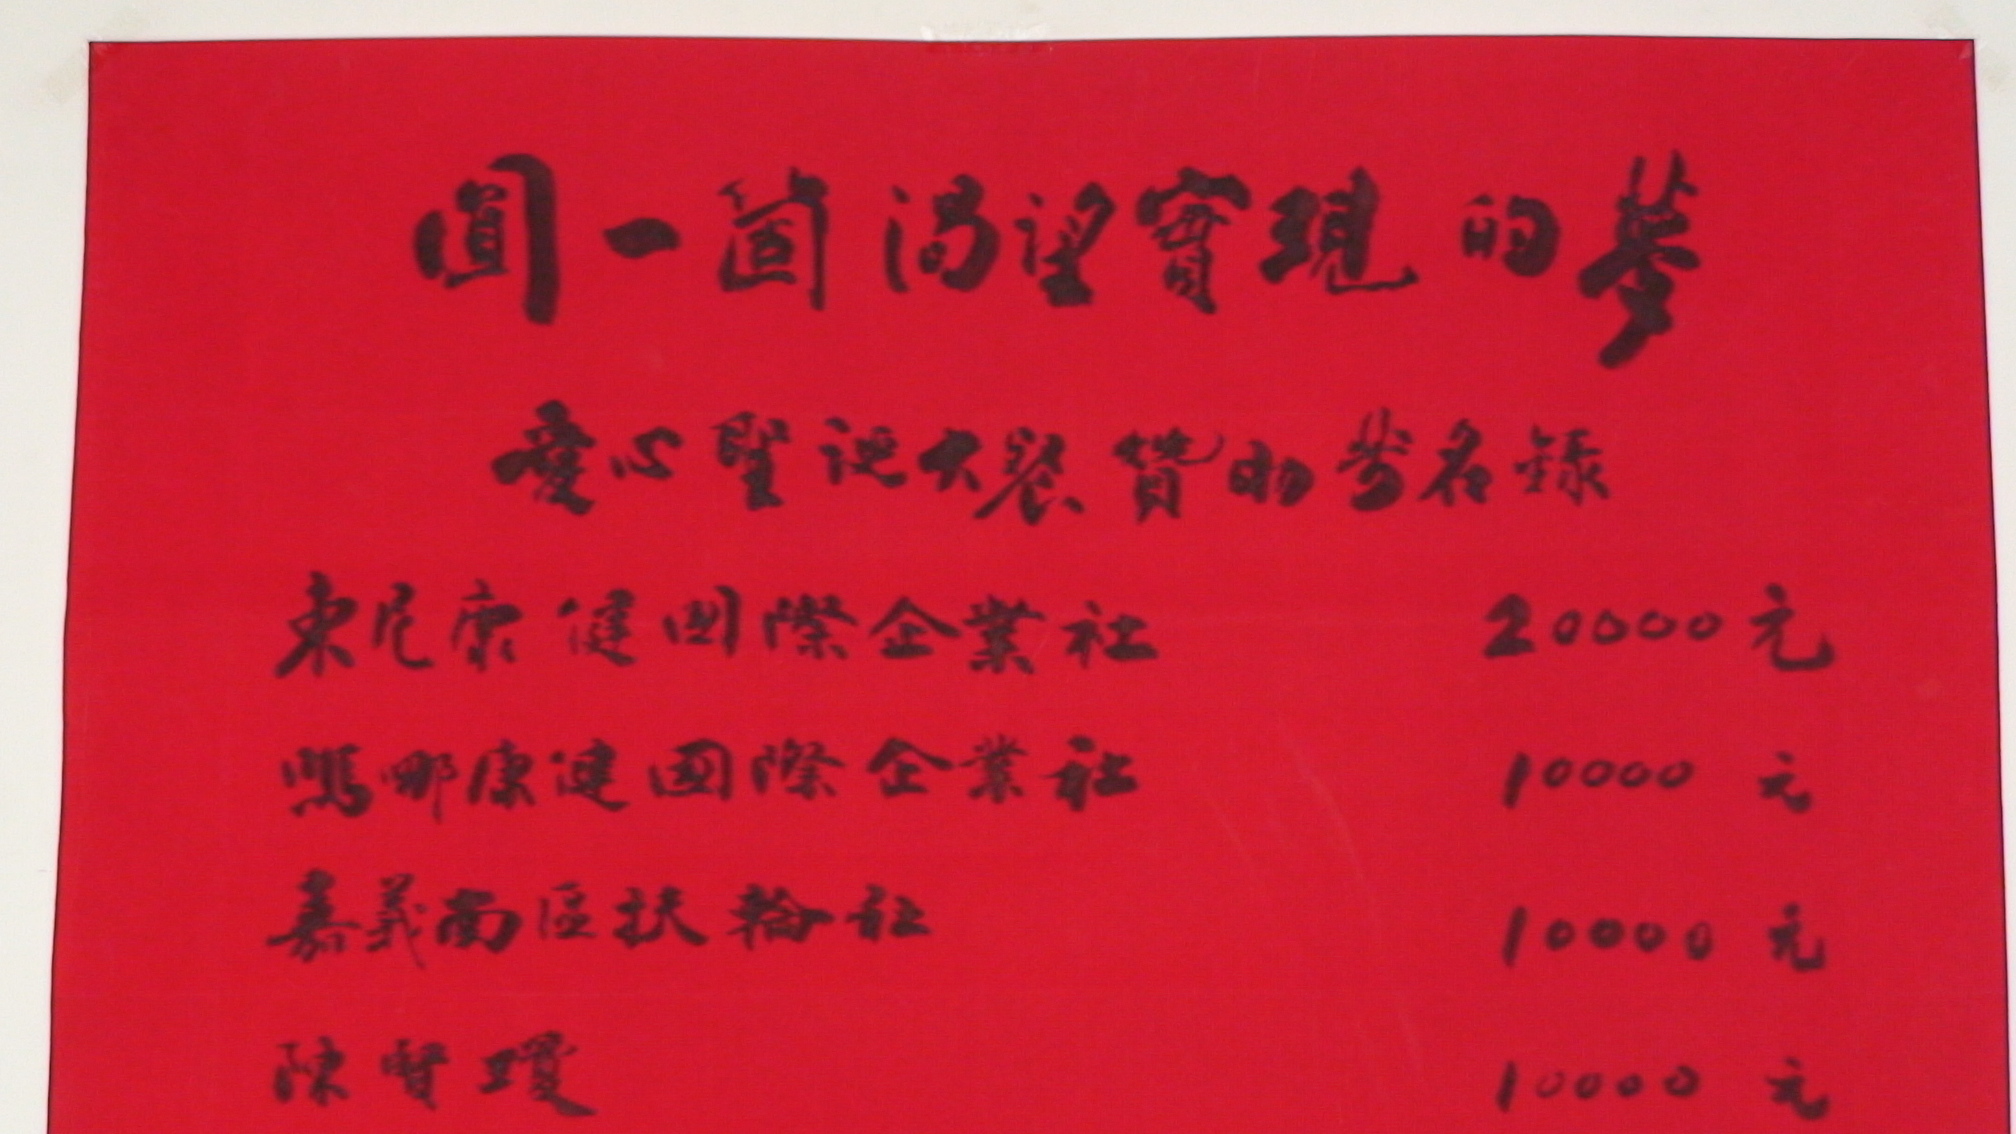 圓一箇渴望實現的夢
愛心聖誕大餐贊助芳名錄
東尼康健國際企業社 20000元
鴻娜康健國際企業社 10000元
嘉義南區扶輪社 10000元
陳賢瓊 10000元